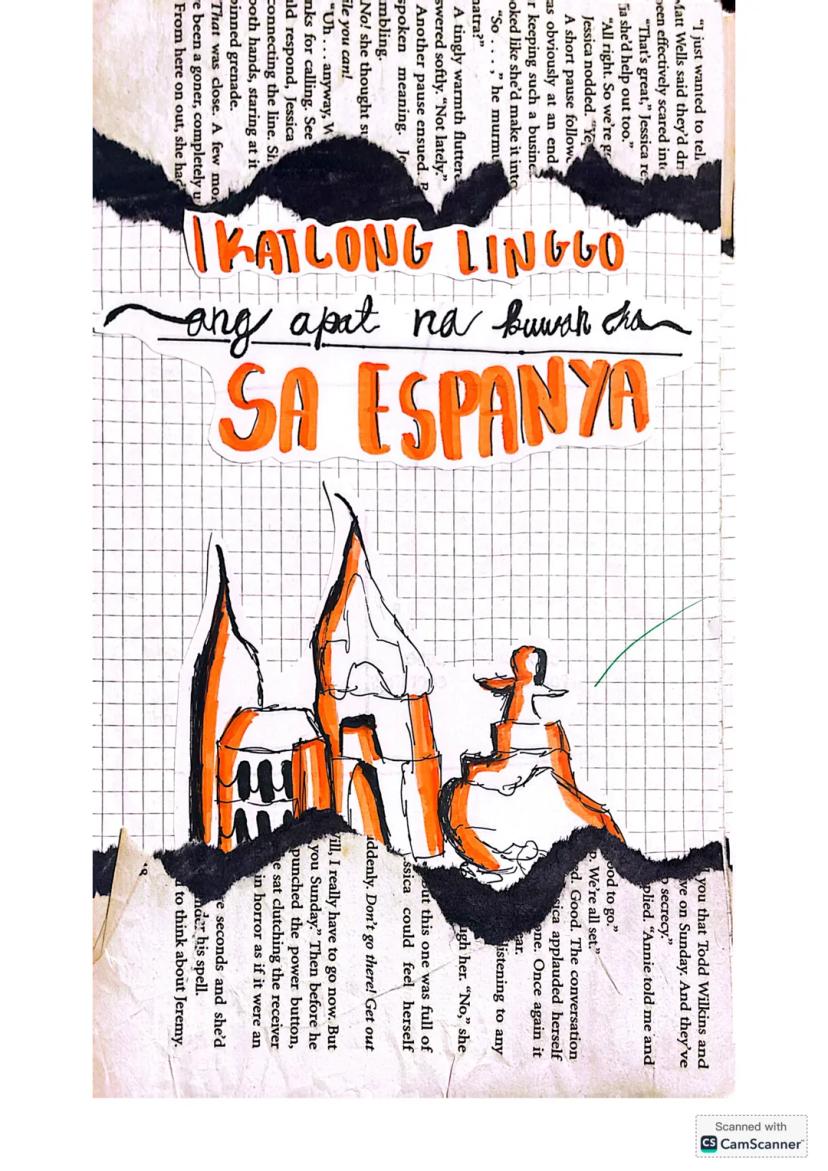 "I just wanted to tell
Matt Wells said they'd dr
been effectively scared into
"That's great," Jessica re
she'd help out too."
"All right. So we're g
Jessica nodded. "Ye
A short pause follow
as obviously at an end
r keeping such a busine
ooked like she'd make it into
"So . . . ," he murmu
natra?"
A tingly warmth flutter
swered softly. "Not lately."
Another pause ensued.
spoken meaning. Je
mbling.
No! she thought su
ile you can!
"Uh . . . anyway, W
nks for calling. See
uld respond, Jessica
connecting the line. Sh
both hands, staring at it
pinned grenade.
That was close. A few mo
e been a goner, completely u
From here on out, she had
IKATLONG LINGGO
ang apat na buwan ka
SA ESPANYA
you that Todd Wilkins and
ve on Sunday. And they've
secrecy."
plied. "Annie told me and
ood to go."
p. We're all set."
d. Good. The conversation
ica applauded herself
one. Once again it
ear.
listening to any
ugh her. "No," she
out this one was full of
ssica could feel herself
ddenly. Don't go there! Get out
ill, I really have to go now. But
you Sunday." Then before he
punched the power button,
e sat clutching the receiver
in horror as if it were an
re seconds and she'd
nder his spell.
to think about Jeremy.
Scanned with
CS CamScanner